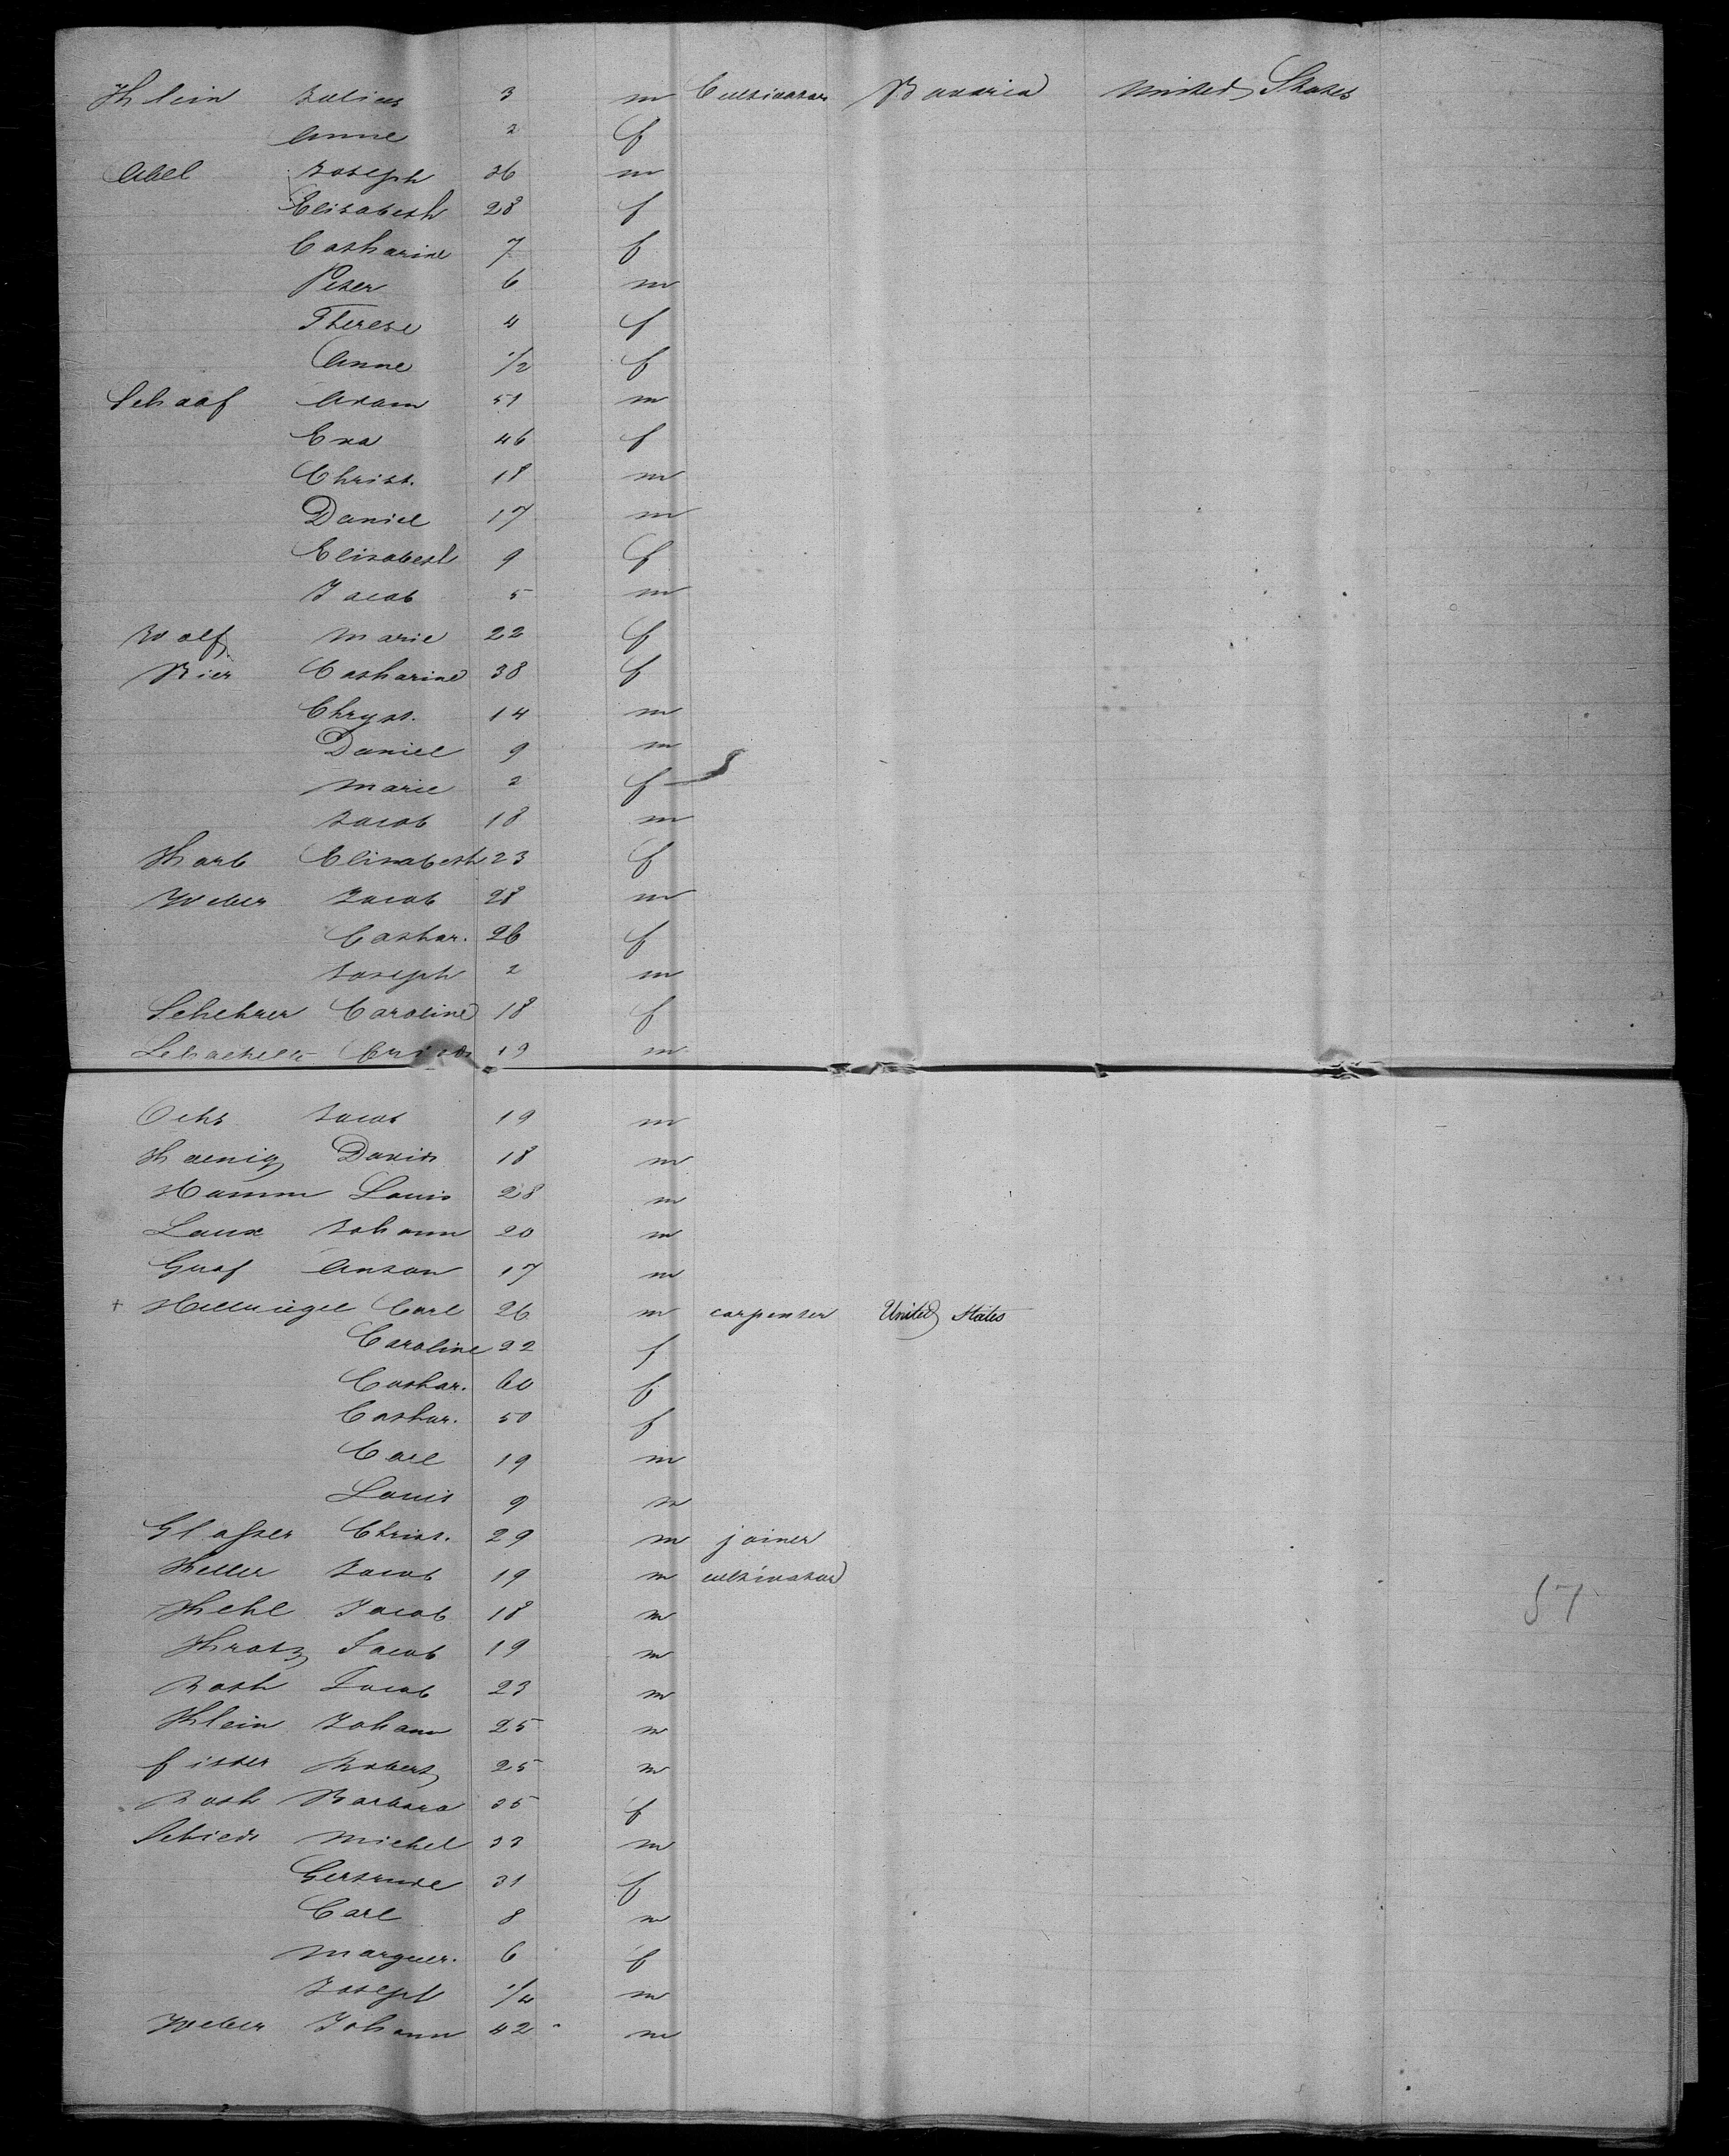 Klein Julius 3 m Cultivator Bavaria United States
Anne 2 f
Abel Joseph 36 m
Elisabeth 28 f
Catharine 7 f
Peter 6 m
Therese 4 f
Anne 1/2 f
Schaaf Adam 51 m
Eva 46 f
Christ. 18 m
Daniel 17 m
Elisabeth 9 f
Jacob 5 m
Wolf Marie 22 f
Bier Catharine 38 f
Chryst. 14 m
Daniel 9 m
Marie 2 f
Jacob 18 m
Karb Elisabeth 23 f
Weber Jacob 28 m
Cathar. 26 f
Joseph 2 m
Schehrer Caroline 18 f
19 m
Ochs Jacob 19 m
Koenig David 18 m
Hamm Louis 28 m
Laux Johann 20 m
Graf Anton 17 m
+ Hellriegel Carl 26 m carpenter United States
Caroline 22 f
Cathar. 60 f
Cathar. 50 f
Carl 19 m
Louis 9 m
Glasser Christ. 29 m joiner
Keller Jacob 19 m cultivator
Kehl Jacob 18 m
Kratz Jacob 19 m
Roth Jacob 23 m
Klein Johann 25 m
fister Robert 25 m
Roth Barbara 35 f
Schied Michel 33 m
Gertrude 31 f
Carl 8 m
Marguer. 6 f
Joseph 1/4 m
Weber Johann 42 m
57